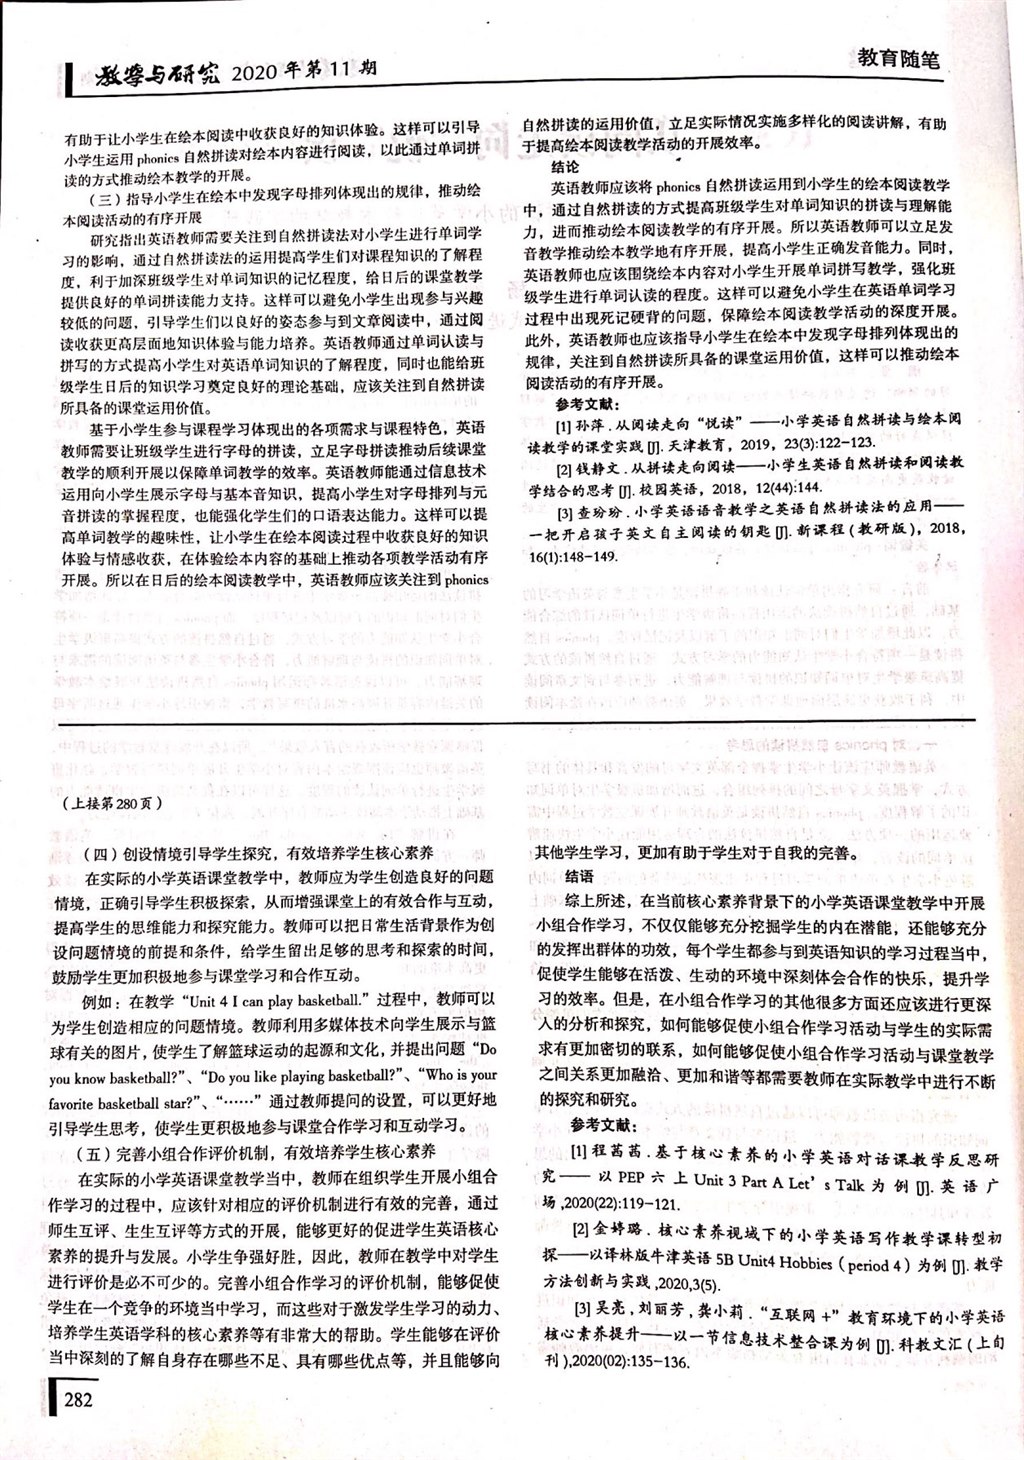 教学与研究 2020年第11期
教育随笔
有助于让小学生在绘本阅读中收获良好的知识体验。这样可以引导
小学生运用phonics自然拼读对绘本内容进行阅读，以此通过单词拼
读的方式推动绘本教学的开展。
（三）指导小学生在绘本中发现字母排列体现出的规律，推动绘
本阅读活动的有序开展
研究指出英语教师需要关注到自然拼读法对小学生进行单词学
习的影响，通过自然拼读法的运用提高学生们对课程知识的了解程
度，利于加深班级学生对单词知识的记忆程度，给日后的课堂教学
提供良好的单词拼读能力支持。这样可以避免小学生出现参与兴趣
较低的问题，引导学生们以良好的姿态参与到文章阅读中，通过阅
读收获更高层面地知识体验与能力培养。英语教师通过单词认读与
拼写的方式提高小学生对英语单词知识的了解程度，同时也能给班
级学生日后的知识学习奠定良好的理论基础，应该关注到自然拼读
所具备的课堂运用价值。
基于小学生参与课程学习体现出的各项需求与课程特色，英语
教师需要让班级学生进行字母的拼读，立足字母拼读推动后续课堂
教学的顺利开展以保障单词教学的效率。英语教师能通过信息技术
运用向小学生展示字母与基本音知识，提高小学生对字母排列与元
音拼读的掌握程度，也能强化学生们的口语表达能力。这样可以提
高单词教学的趣味性，让小学生在绘本阅读过程中收获良好的知识
体验与情感收获，在体验绘本内容的基础上推动各项教学活动有序
开展。所以在日后的绘本阅读教学中，英语教师应该关注到phonics
自然拼读的运用价值，立足实际情况实施多样化的阅读讲解，有助
于提高绘本阅读教学活动的开展效率。
结论
英语教师应该将phonics自然拼读运用到小学生的绘本阅读教学
中，通过自然拼读的方式提高班级学生对单词知识的拼读与理解能
力，进而推动绘本阅读教学的有序开展。所以英语教师可以立足发
音教学推动绘本教学地有序开展，提高小学生正确发音能力。同时，
英语教师也应该围绕绘本内容对小学生开展单词拼写教学，强化班
级学生进行单词认读的程度。这样可以避免小学生在英语单词学习
过程中出现死记硬背的问题，保障绘本阅读教学活动的深度开展。
此外，英语教师也应该指导小学生在绘本中发现字母排列体现出的
规律，关注到自然拼读所具备的课堂运用价值，这样可以推动绘本
阅读活动的有序开展。
参考文献：
[1] 孙萍.从阅读走向“悦读”——小学英语自然拼读与绘本阅
读教学的课堂实践[J].天津教育，2019，23(3):122-123.
[2] 钱静文.从拼读走向阅读——小学生英语自然拼读和阅读教
学结合的思考[J].校园英语，2018，12(44):144.
[3] 查玢玢.小学英语语音教学之英语自然拼读法的应用——
一把开启孩子英文自主阅读的钥匙[J].新课程(教研版)，2018，
16(1):148-149.
（上接第280页）
（四）创设情境引导学生探究，有效培养学生核心素养
在实际的小学英语课堂教学中，教师应为学生创造良好的问题
情境，正确引导学生积极探索，从而增强课堂上的有效合作与互动，
提高学生的思维能力和探究能力。教师可以把日常生活背景作为创
设问题情境的前提和条件，给学生留出足够的思考和探索的时间，
鼓励学生更加积极地参与课堂学习和合作互动。
例如：在教学“Unit 4 I can play basketball.”过程中，教师可以
为学生创造相应的问题情境。教师利用多媒体技术向学生展示与篮
球有关的图片，使学生了解篮球运动的起源和文化，并提出问题“Do
you know basketball?”、“Do you like playing basketball?”、“Who is your
favorite basketball star?”、“……”通过教师提问的设置，可以更好地
引导学生思考，使学生更积极地参与课堂合作学习和互动学习。
（五）完善小组合作评价机制，有效培养学生核心素养
在实际的小学英语课堂教学当中，教师在组织学生开展小组合
作学习的过程中，应该针对相应的评价机制进行有效的完善，通过
师生互评、生生互评等方式的开展，能够更好的促进学生英语核心
素养的提升与发展。小学生争强好胜，因此，教师在教学中对学生
进行评价是必不可少的。完善小组合作学习的评价机制，能够促使
学生在一个竞争的环境当中学习，而这些对于激发学生学习的动力、
培养学生英语学科的核心素养等有非常大的帮助。学生能够在评价
当中深刻的了解自身存在哪些不足、具有哪些优点等，并且能够向
其他学生学习，更加有助于学生对于自我的完善。
结语
综上所述，在当前核心素养背景下的小学英语课堂教学中开展
小组合作学习，不仅仅能够充分挖掘学生的内在潜能，还能够充分
的发挥出群体的功效，每个学生都参与到英语知识的学习过程当中，
促使学生能够在活泼、生动的环境中深刻体会合作的快乐，提升学
习的效率。但是，在小组合作学习的其他很多方面还应该进行更深
入的分析和探究，如何能够促使小组合作学习活动与学生的实际需
求有更加密切的联系，如何能够促使小组合作学习活动与课堂教学
之间关系更加融洽、更加和谐等都需要教师在实际教学中进行不断
的探究和研究。
参考文献：
[1] 程茜茜.基于核心素养的小学英语对话课教学反思研
究——以PEP六上Unit 3 Part A Let's Talk为例[J].英语广
场,2020(22):119-121.
[2] 金婷璐.核心素养视域下的小学英语写作教学课转型初
探——以译林版牛津英语5B Unit4 Hobbies（period 4）为例[J].教学
方法创新与实践,2020,3(5).
[3] 吴亮,刘丽芳,龚小莉.“互联网+”教育环境下的小学英语
核心素养提升——以一节信息技术整合课为例[J].科教文汇(上旬
刊),2020(02):135-136.
282